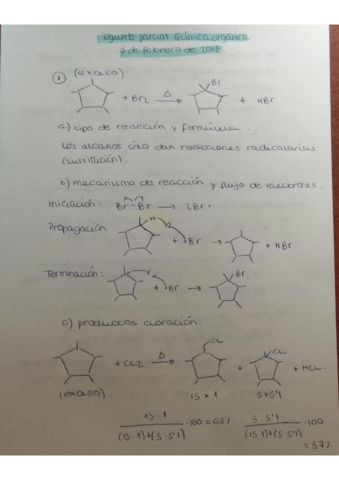 Segundo parcial Química orgánica
2 de febrero de 2018.
① (exceso)
+ Br2 Δ → Br + HBr
a) tipo de reacción y fórmulas.
Los alcanos sólo dan reacciones radicalarias
(sustitución).
b) mecanismo de reacción y flujo de electrones.
Iniciación: Br-Br → 2Br·
Propagación H + ·Br → + HBr
Terminación: + ·Br → Br
c) productos cloración.
+ Cl2 Δ → Cl + Cl + HCl
(exceso) 15 x 1 5 x 5'1
15·1 / (15·1)+(5·5'1) ·100 = 63% 5·5'1 / (15·1)+(5·5'1) 100
= 37%